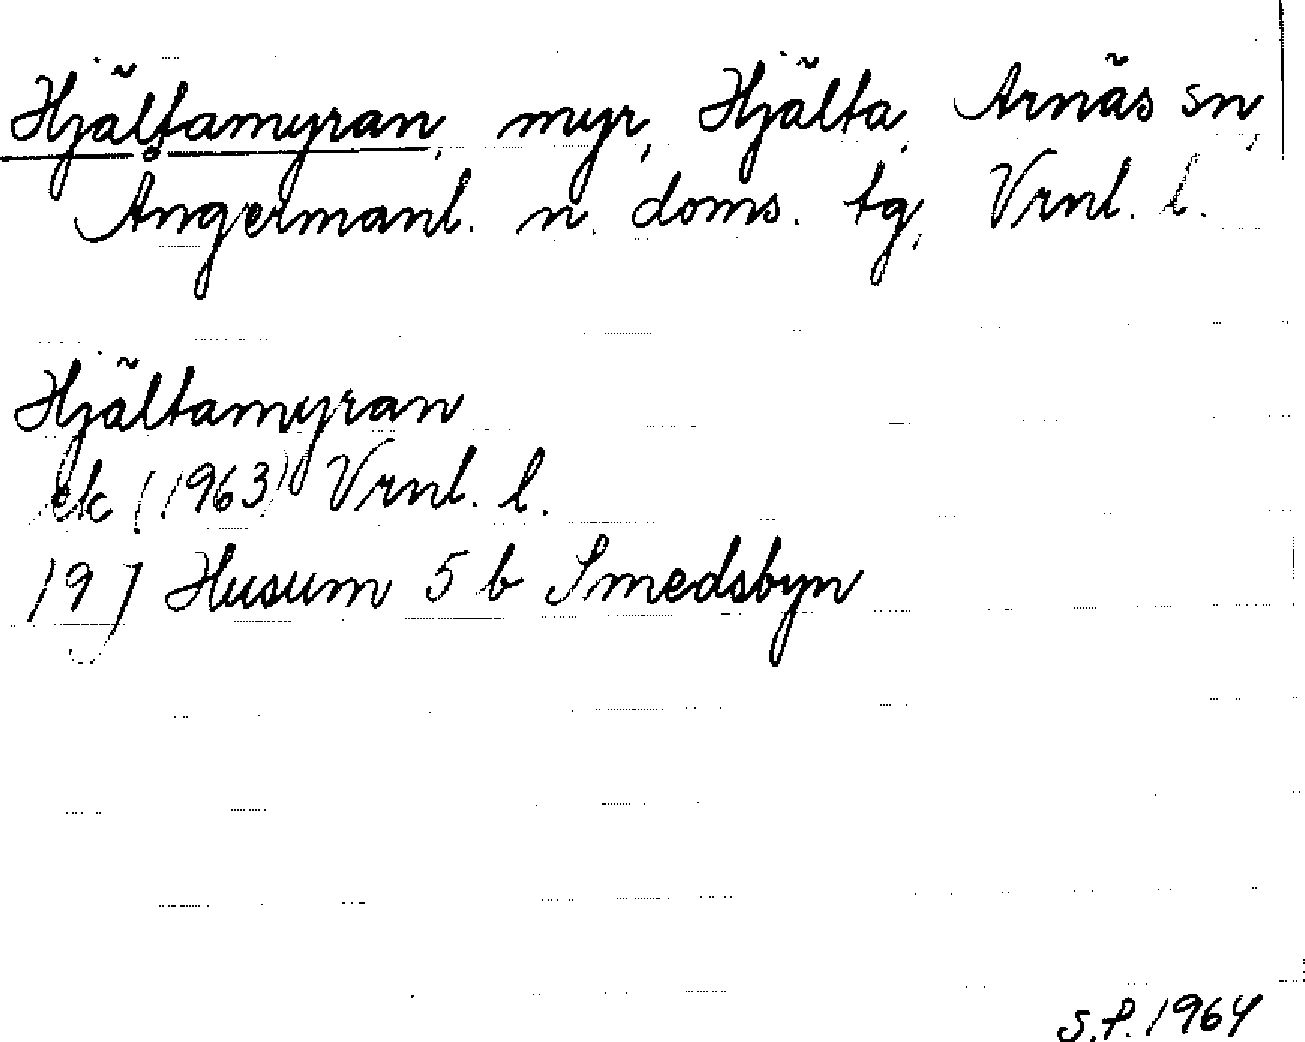 Hjältamyran, myr, Hjälta, Arnäs sn,
Ångermanl. n. doms. tg, Vrnl. l.
Hjältamyran
ek (1963) Vrnl. l.
19 J Husum 5 b Smedsbyn
S.P. 1964